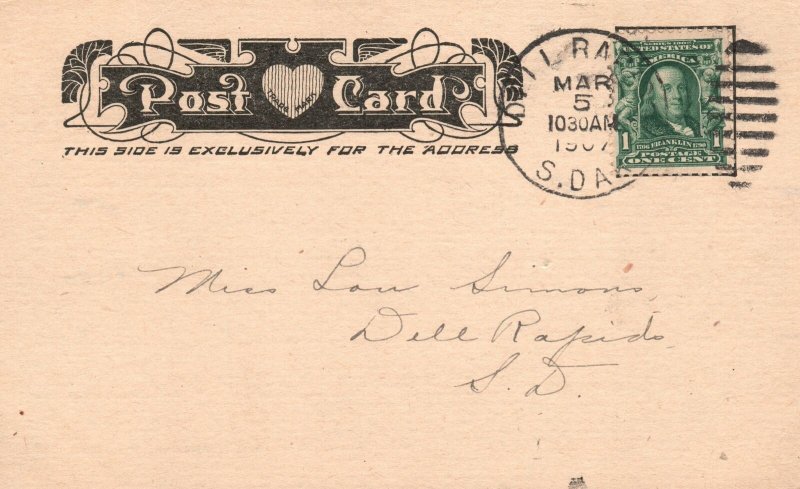 Post Card
TRADE MARK
THIS SIDE IS EXCLUSIVELY FOR THE ADDRESS
DELL RAP
MAR
5
1030AM
1907
S. DAK
SERIES 1902
UNITED STATES OF
AMERICA
1706 FRANKLIN 1790
POSTAGE
1 ONE CENT
Miss Lou Simons,
Dell Rapids,
S. D.